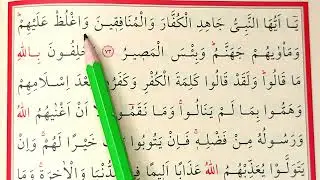 يَٓا اَيُّهَا النَّبِيُّ جَاهِدِ الْكُفَّارَ وَالْمُنَافِقِينَ وَاغْلُظْ عَلَيْهِمْ
وَمَأْوٰيهُمْ جَهَنَّمُ وَبِئْسَ الْمَصِيرُ ٧٣ يَحْلِفُونَ بِاللّٰهِ
مَا قَالُوا وَلَقَدْ قَالُوا كَلِمَةَ الْكُفْرِ وَكَفَرُوا بَعْدَ اِسْلَامِهِمْ
وَهَمُّوا بِمَا لَمْ يَنَالُوا وَمَا نَقَمُٓوا اِلَّٓا اَنْ اَغْنٰيهُمُ اللّٰهُ
وَرَسُولُهُ مِنْ فَضْلِهِ فَاِنْ يَتُوبُوا يَكُ خَيْرًا لَهُمْ وَاِنْ
يَتَوَلَّوْا يُعَذِّبْهُمُ اللّٰهُ عَذَابًا اَلِيمًا فِي الدُّنْيَا وَالْاٰخِرَةِ